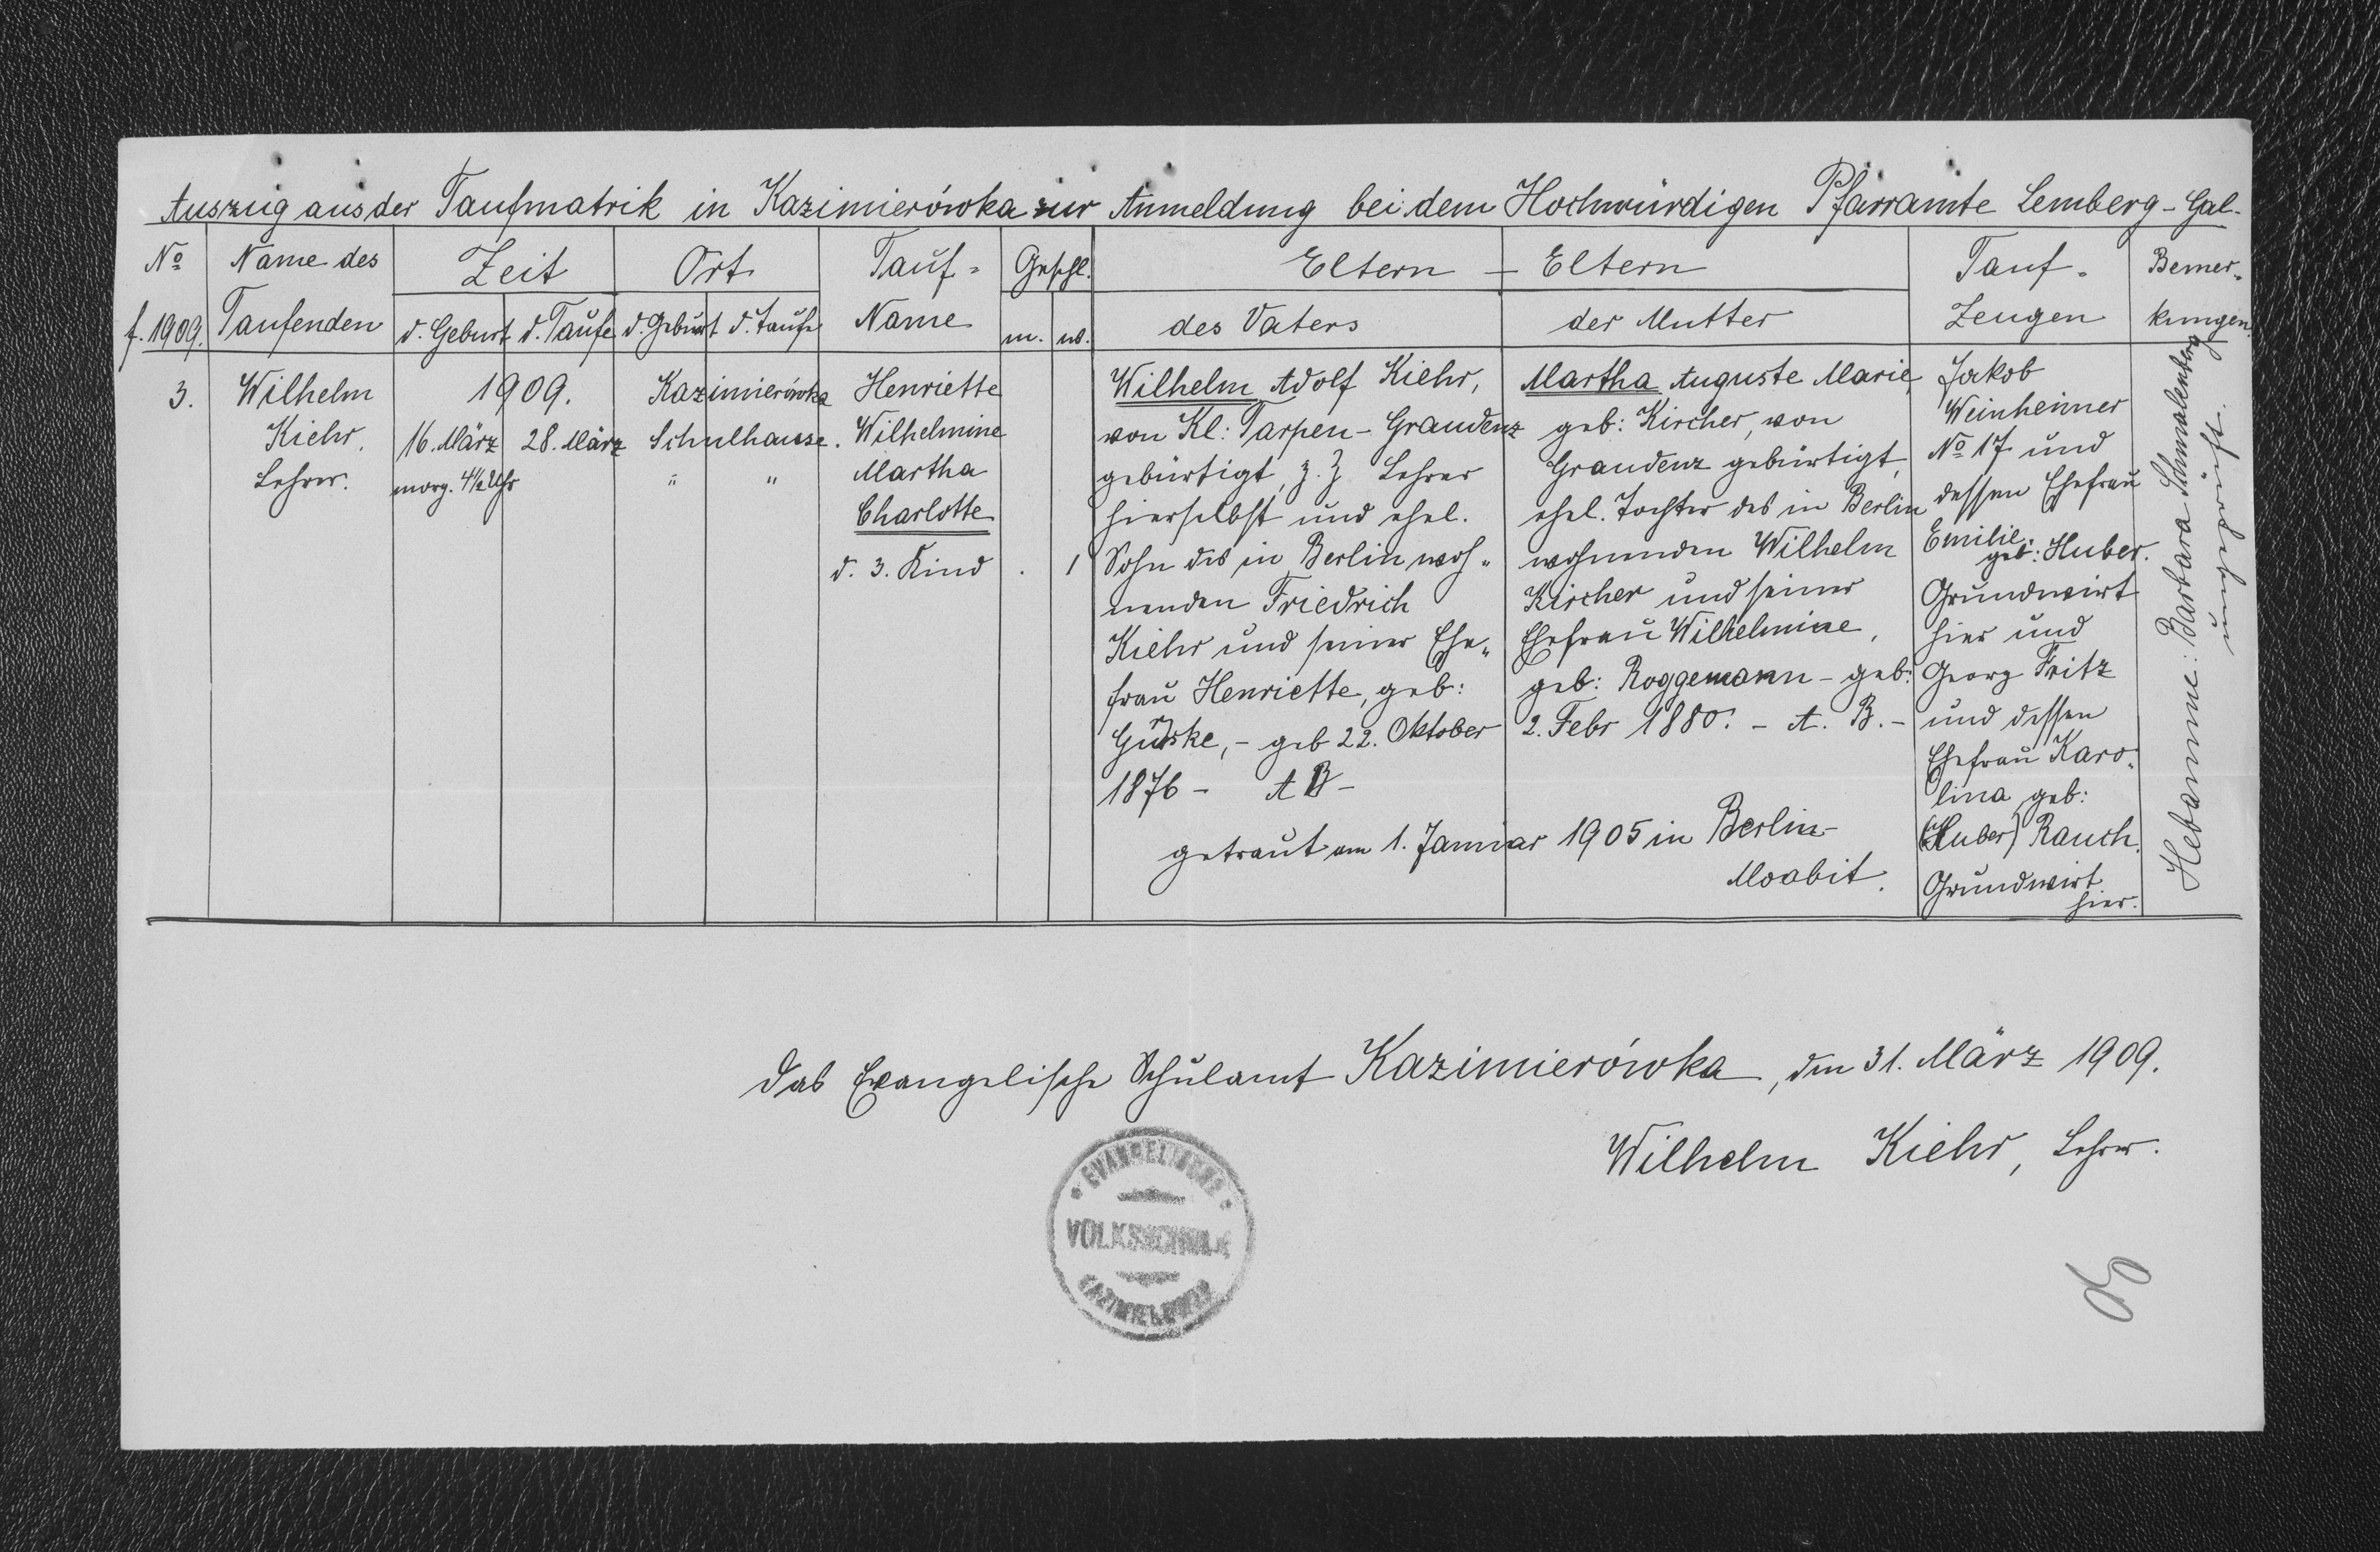 Auszug aus der Taufmatrik in Kazimierówka zur Anmeldung bei dem Hochwürdigen Pfarramte Lemberg - Gal-
No
f. 1909.
Name des
Taufenden
Zeit
d. Geburt d. Taufe
Ort
d. Geburt d. Taufe
Tauf-
Name
Geschl.
m. w.
Eltern - Eltern
des Vaters
der Mutter
Tauf-
Zeugen
Bemer-
kungen
3.
Wilhelm
Kiehr,
Lehrer.
1909.
16. März 28. März
morg. 4½ Uhr
Kazimierówka
Schulhause.
" "
Henriette
Wilhelmine
Martha
Charlotte
d. 3. Kind
. 1
Wilhelm Adolf Kiehr,
von Kl: Tarpen - Graudenz
gebürtigt, z. Z Lehrer
hierselbst und ehel.
Sohn des in Berlin woh-
nenden Friedrich
Kiehr und seiner Ehe-
frau Henriette, geb:
Gurske, - geb 22. Oktober
1876 - A B -
Martha Auguste Marie,
geb: Kircher, von
Graudenz gebürtigt,
ehel. Tochter des in Berlin
wohnenden Wilhelm
Kircher und seiner
Ehefrau Wilhelmine,
geb: Roggemann - geb:
2. Febr 1880. - A. B. -
getraut am 1. Januar 1905 in Berlin-
Moabit.
Jakob
Weinheimer
No 17 und
dessen Ehefrau
Emilie,
geb: Huber.
Grundwirt
hier und
Georg Fritz
und dessen
Ehefrau Karo-
lina geb:
(Huber) Rauch.
Grundwirt
hier.
Hebamme: Barbara Schmalenberg
ungeprüft.
Das Evangelische Schulamt Kazimierówka, den 31. März 1909.
Wilhelm Kiehr, Lehrer.
EVANGELISCHE
VOLKSSCHULE
KAZIMIERÓWKA